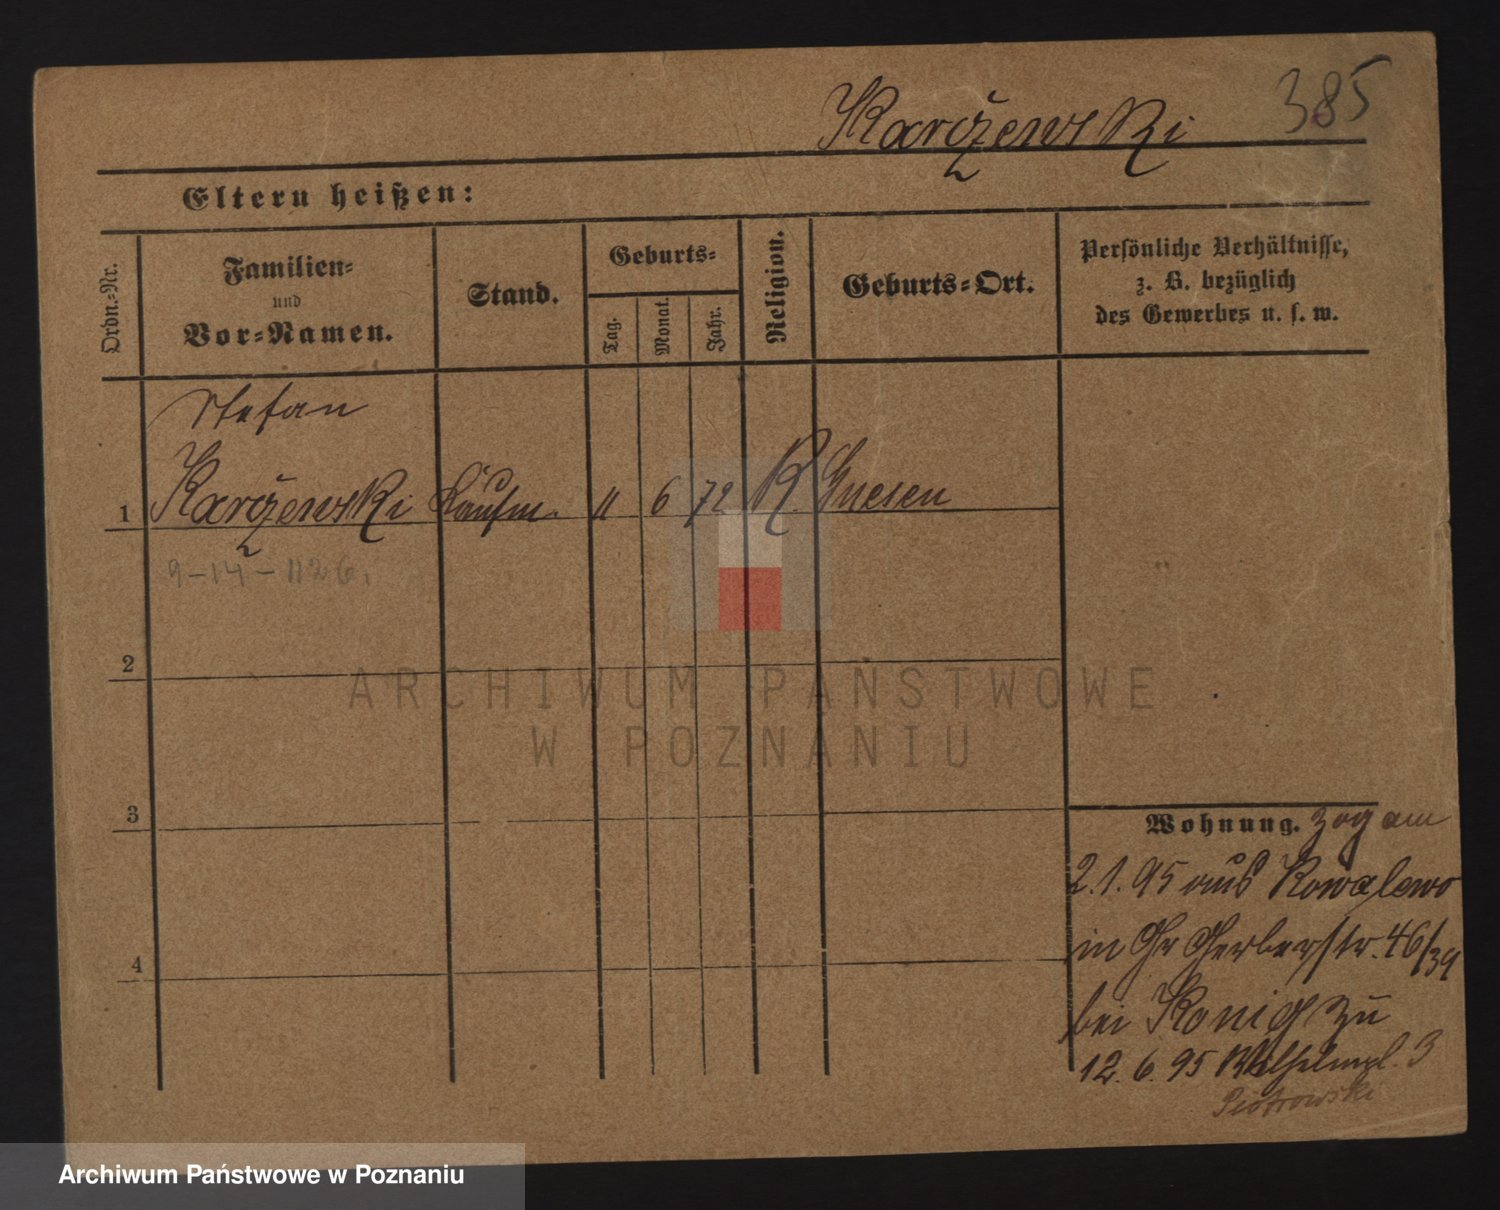 385
Karczewski
Eltern heißen:
Ordn.-Nr.
Familien-
und
Vor-Namen.
Stand.
Geburts-
Tag.
Monat.
Jahr.
Religion.
Geburts-Ort.
Persönliche Verhältnisse,
z. B. bezüglich
des Gewerbes u. s. w.
Stefan
1 Karczewski Kaufm. 11 6 72 K. Gnesen
9-14-1126.
2
3
4
Wohnung. zog am
2.1.95 aus Kowalewo
in Gr Gerberstr. 46/39
bei König zu
12.6.95 Wilhelmpl. 3
Piotrowski
ARCHIWUM PAŃSTWOWE
W POZNANIU
Archiwum Państwowe w Poznaniu